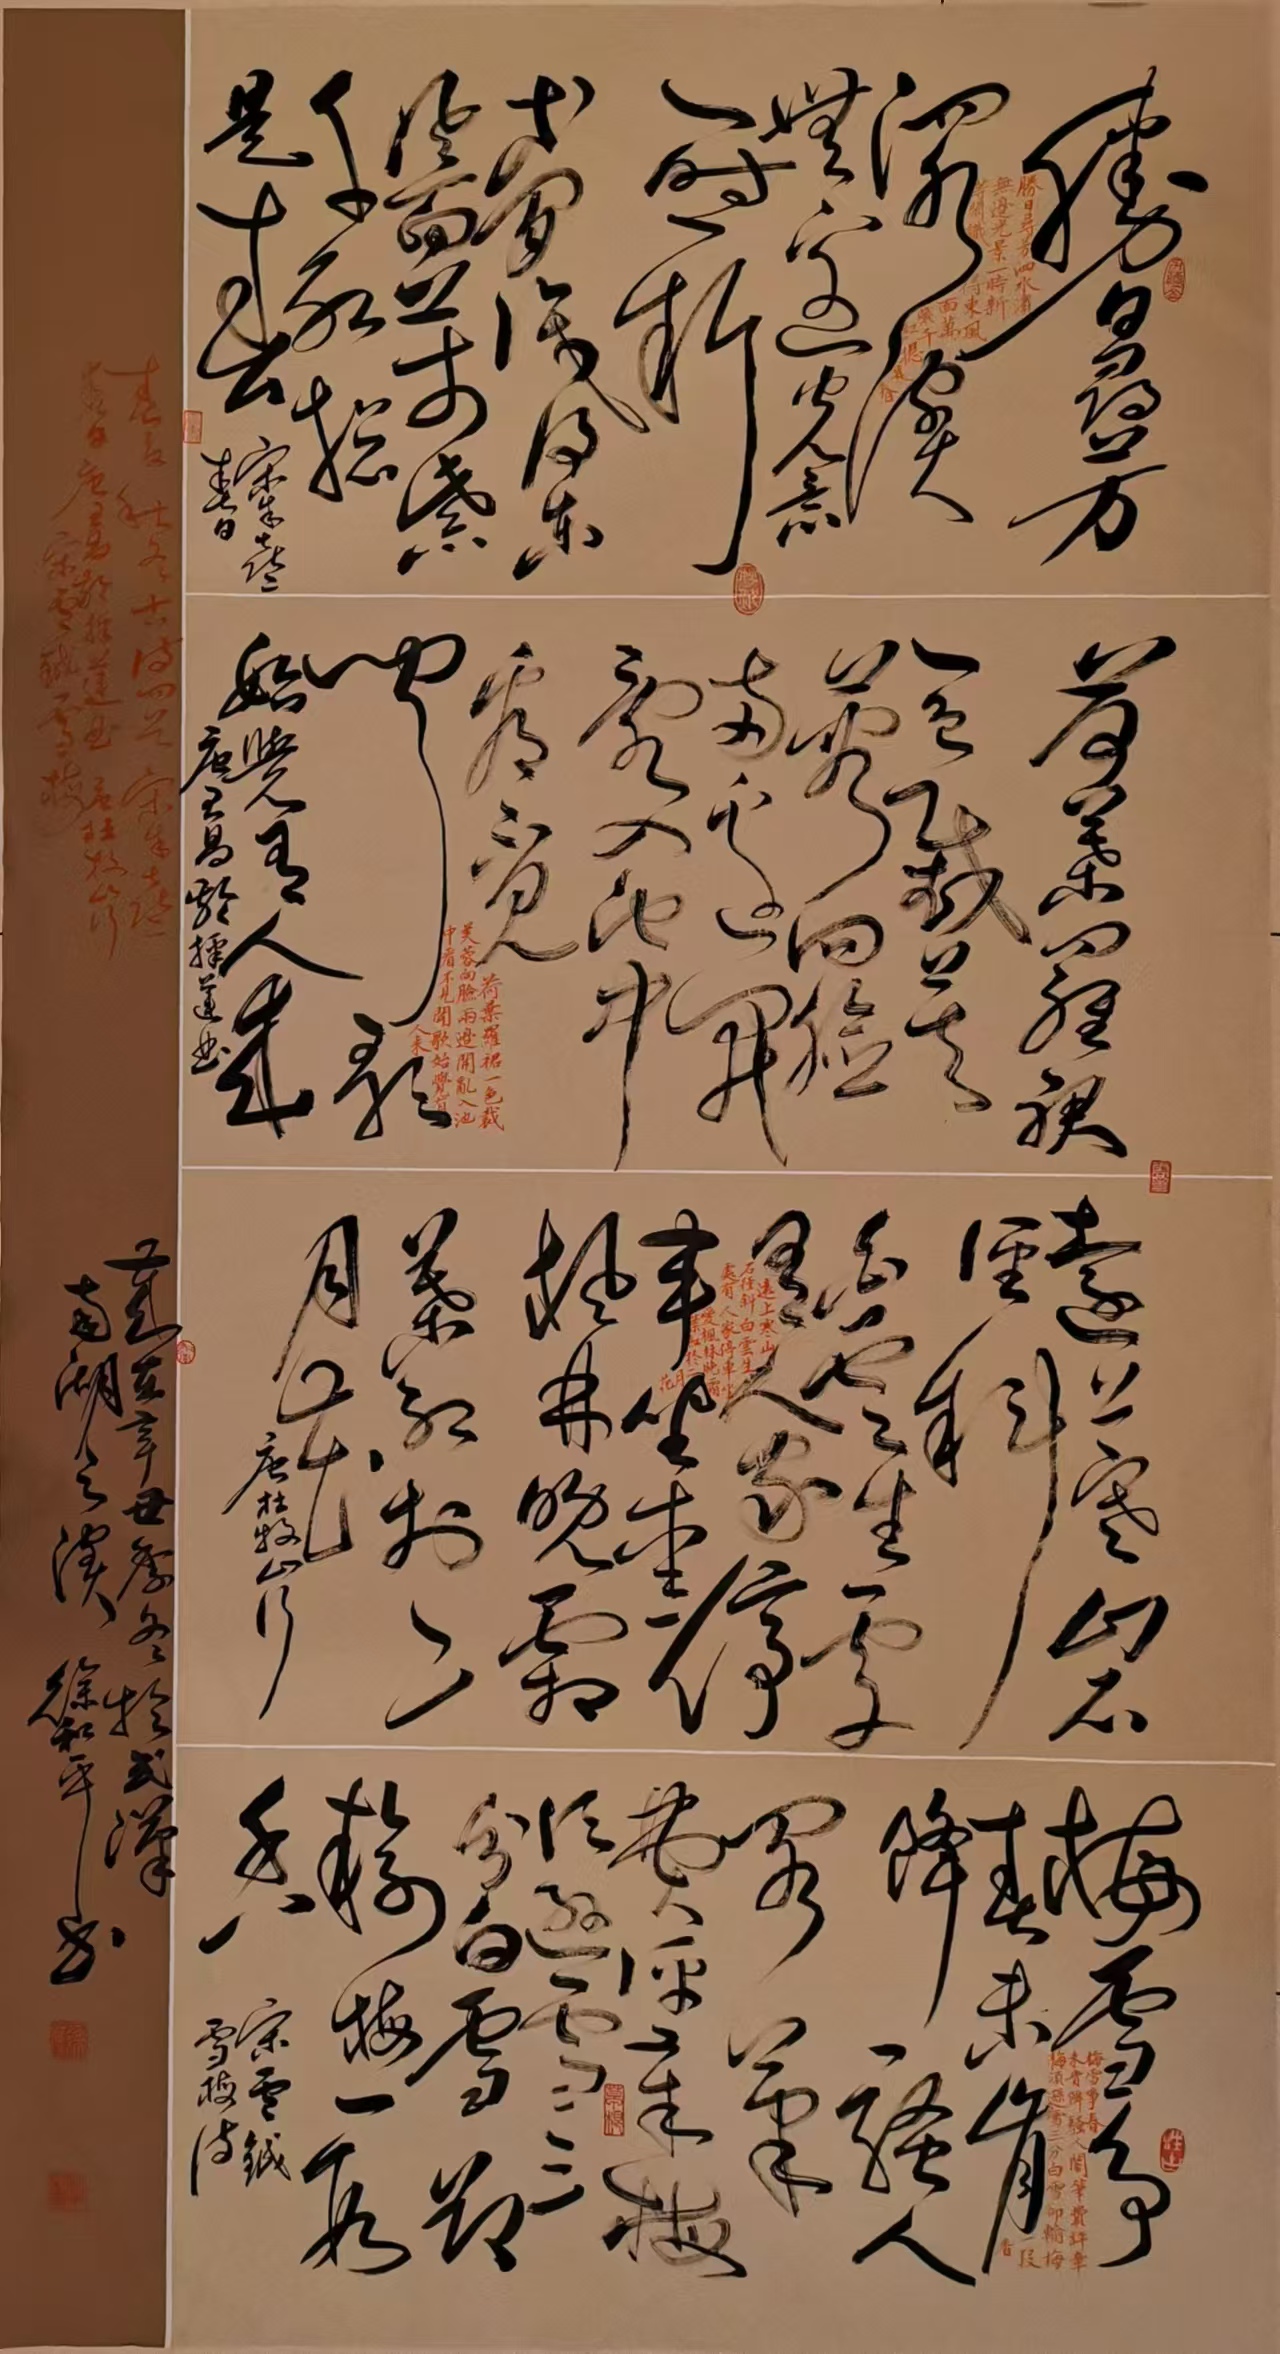 勝日尋芳
泗水濱
無邊光景
一時新
等閒識得東
風面萬紫
千紅總
是春
宋朱熹
春日
勝日尋芳泗水濱
無邊光景一時新
等閒識得東風
面萬紫千
紅總是春
荷葉羅裙
一色裁芙
蓉向臉
兩邊開
亂入池中
看不見
聞歌
始覺有人來
唐王昌齡採蓮曲
荷葉羅裙一色裁
芙蓉向臉兩邊開亂入池
中看不見聞歌始覺有
人來
遠上寒山石
徑斜
白雲生處
有人家停
車坐愛
楓林晚霜
葉紅於二
月花
唐杜牧山行
遠上寒山
石徑斜白雲生
處有人家停車坐
愛楓林晚霜
葉紅於二月
花
梅雪爭
春未肯
降騷人
閣筆
費評章梅
須遜雪三
分白雪卻
輸梅一段
香
宋雪鉞
雪梅詩
梅雪爭春
未肯降騷人閣筆費評章
梅須遜雪三分白雪卻輸梅
一段
香
春夏秋冬古詩四首 宋朱熹
春日 唐王昌齡採蓮曲 唐杜牧山行
宋雪鉞雪梅
歲在辛丑季冬於武漢
南湖之濱 徐和平書